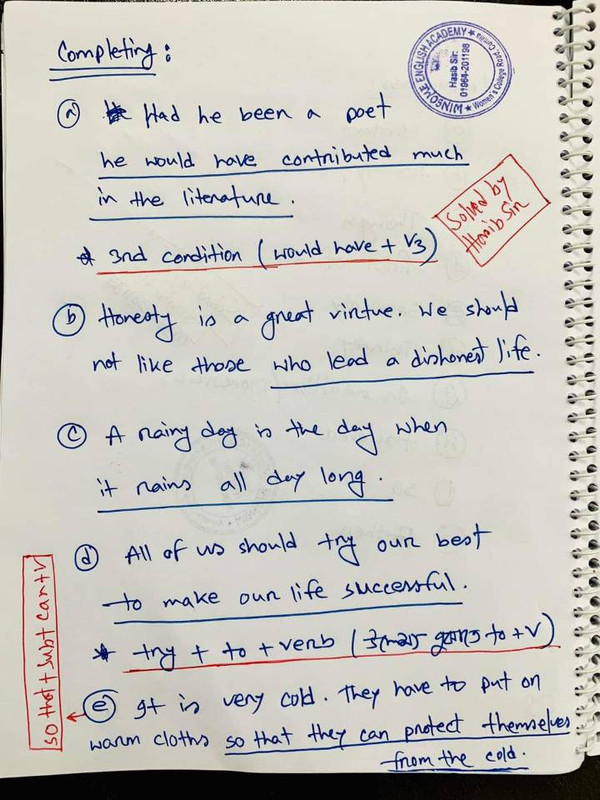 Completing:
WINSOME ENGLISH ACADEMY
Hasib Sir:
01964-201198
Women's College Road,
ⓐ Had he been a poet
he would have contributed much
in the literature.
Solved by
Hasib Sir
* 3rd condition (would have + V3)
ⓑ Honesty is a great virtue. We should
not like those who lead a dishonest life.
ⓒ A rainy day is the day when
it rains all day long.
ⓓ All of us should try our best
to make our life successful.
* try + to + verb ( to + V)
so that + subt can + v
ⓔ It is very cold. They have to put on
warm cloths so that they can protect themselves
from the cold.